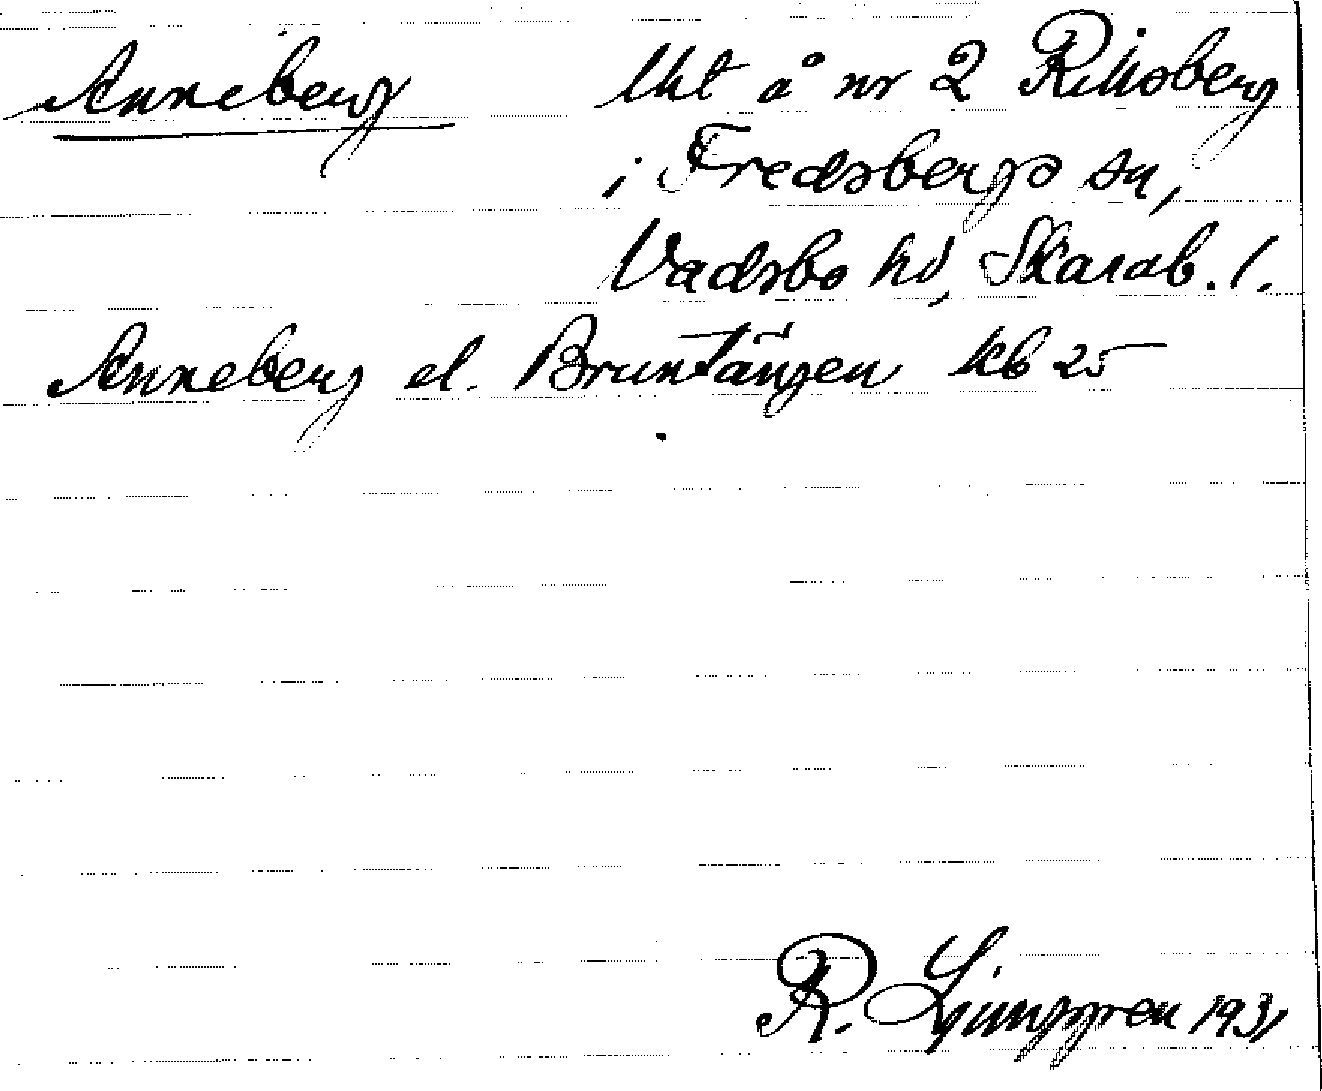 Anneberg Uht å nr 2 Riksberg
i Fredsbergs sn,
Vadsbo hd, Skarab. l.
Anneberg el. Bruntängen kb 25
R. Ljunggren 1931